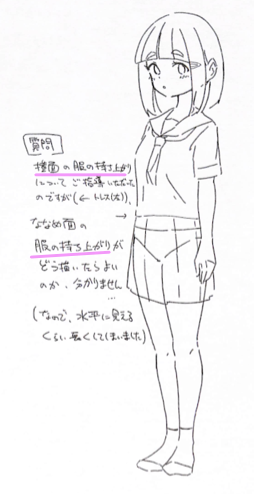 質問
横面の服の持ち上がり
についてご指導いただいた
のですが(←トレス(太))、
ななめ面の
服の持ち上がりが
どう描いたらよい
のか、分かりません
…
(なので、水平に見える
くらい長くしてしまいました)